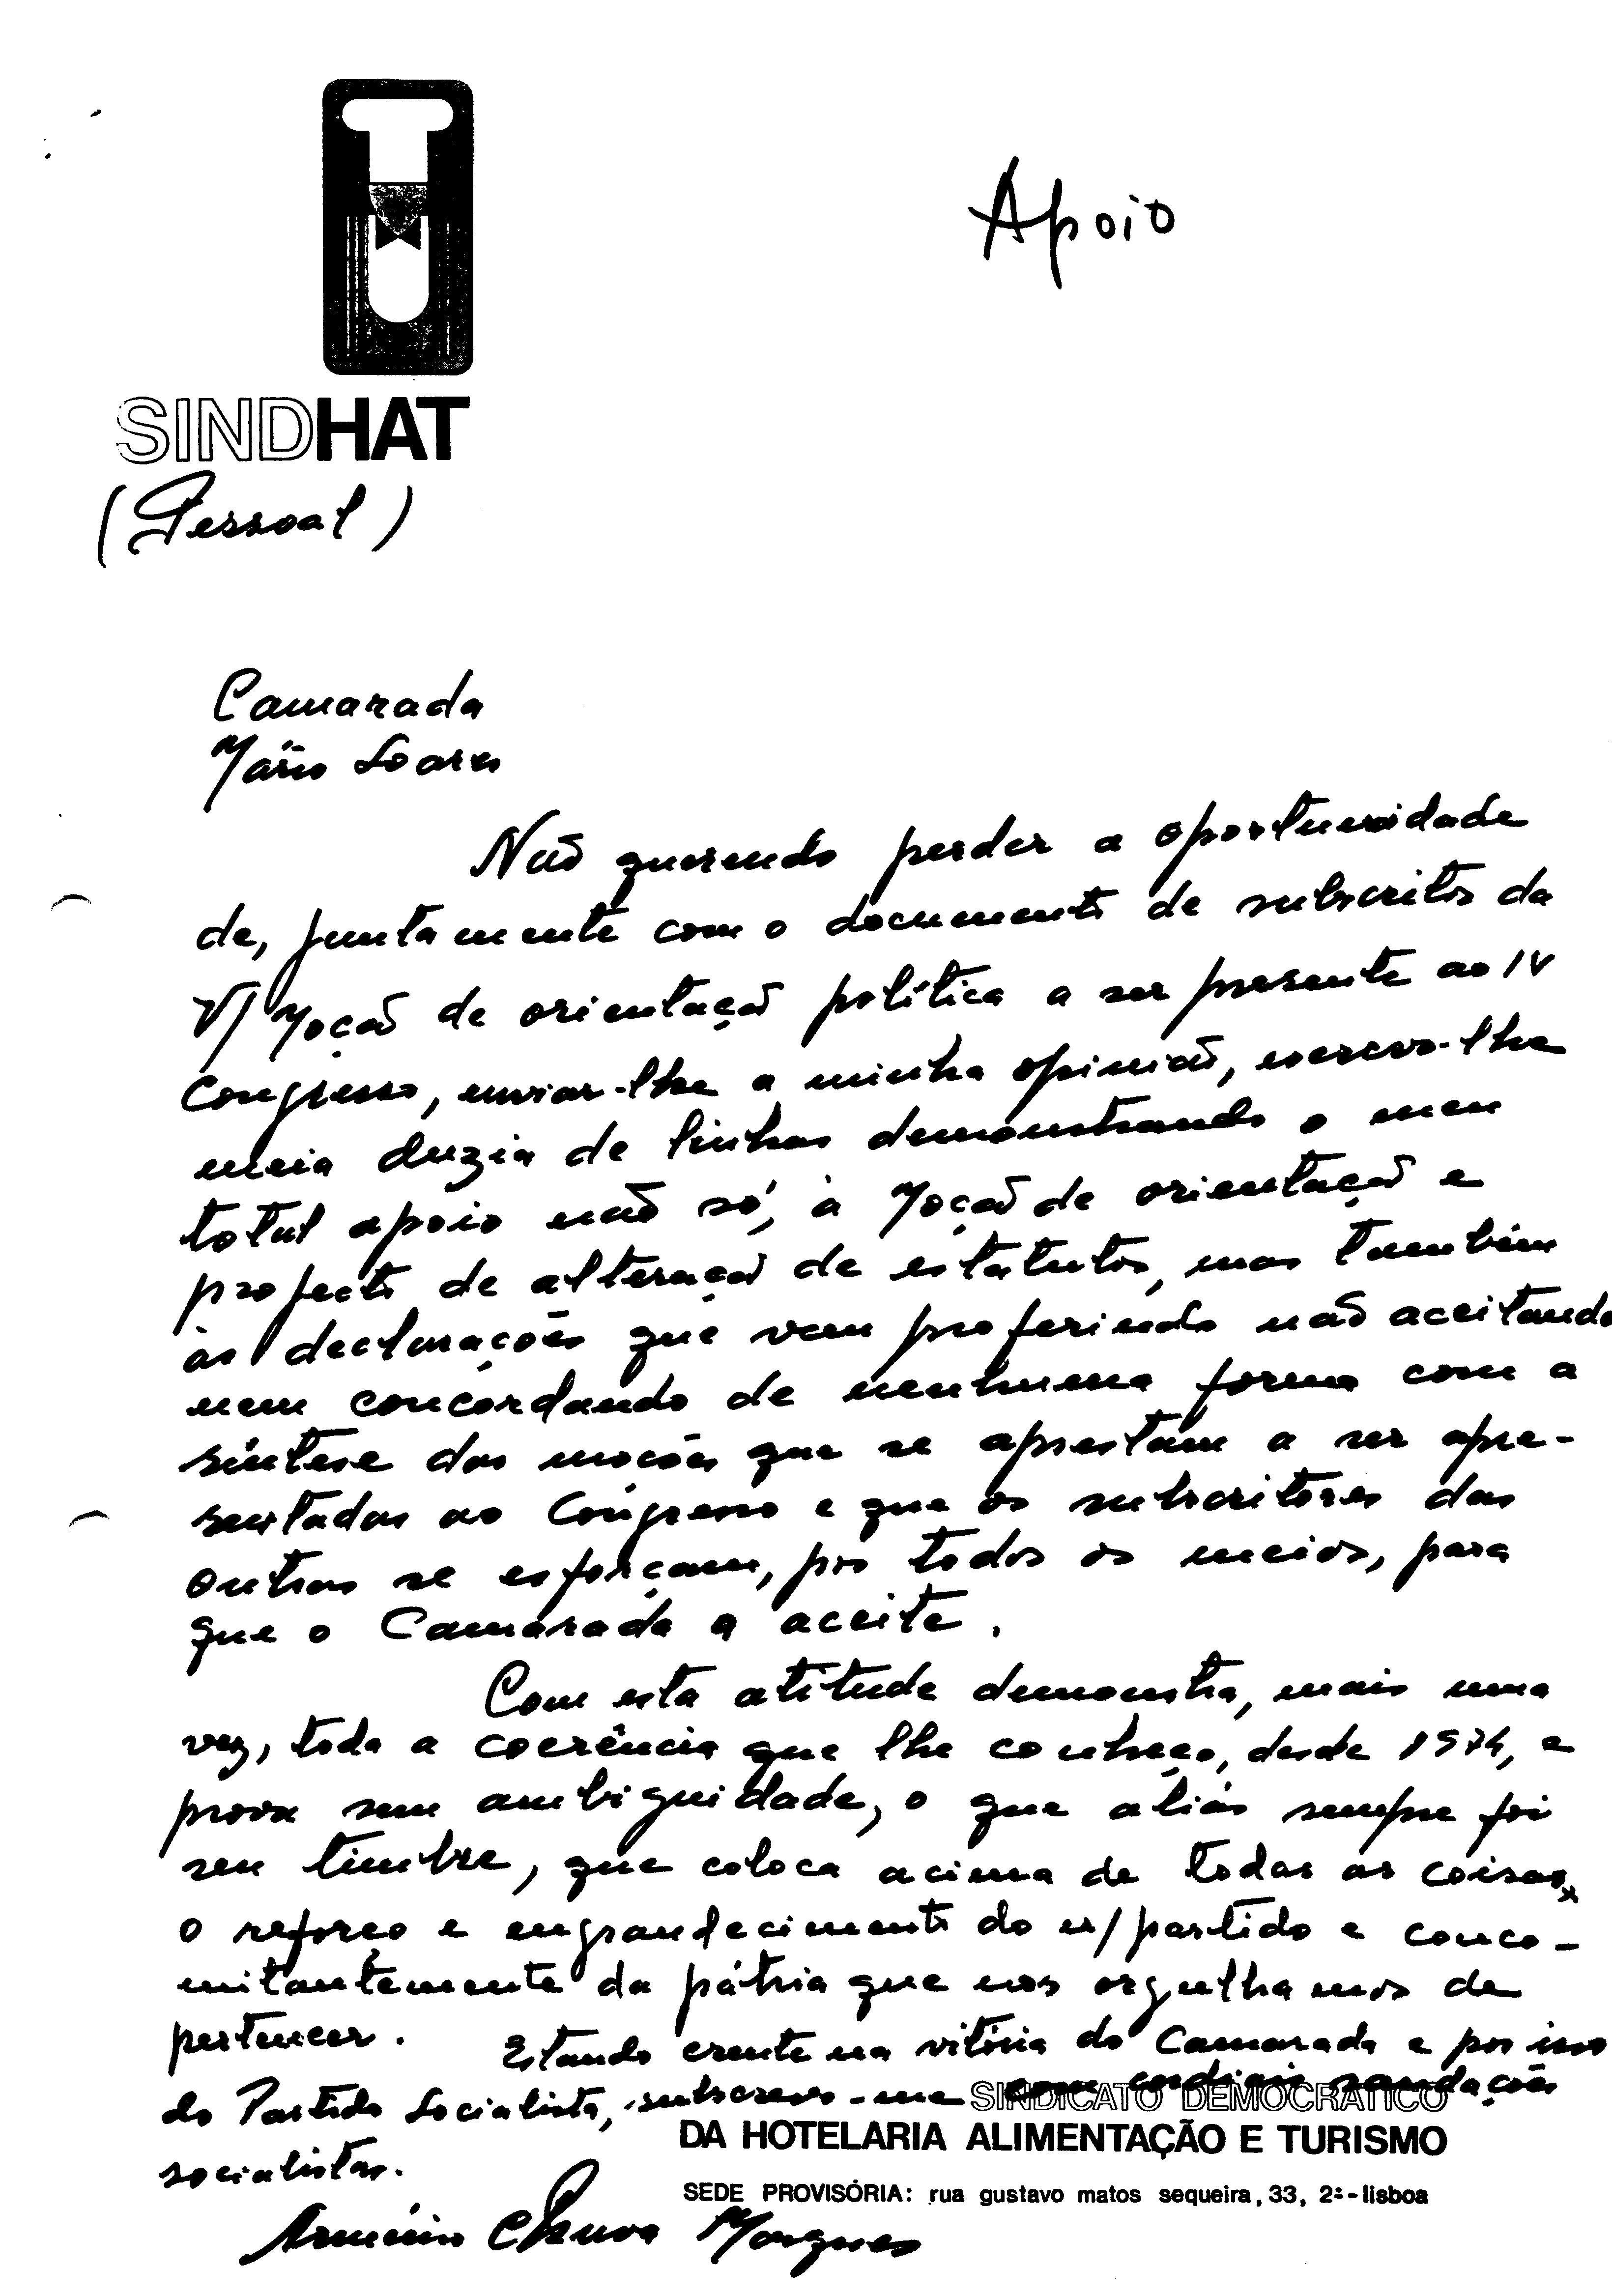 Apoio
SINDHAT
(Pessoal)
Camarada
Mário Soares
Não querendo perder a oportunidade
de, juntamente com o documento de subscritos da
V/ Moção de orientação política a ser presente ao IV
Congresso, enviar-lhe a minha opinião, escrevo-lhe
meia duzia de linhas demonstrando o meu
total apoio não só, à Moção de orientação e
projecto de alteração de estatutos, mas também
às declarações que vem proferindo não aceitando
nem concordando de nenhuma forma com a
síntese das moções que se aprestam a ser apre-
sentadas ao Congresso e que os subscritores das
outras se esforçam, por todos os meios, para
que o Camarada a aceite.
Com esta atitude demonstra, mais uma
vez, toda a coerência que lhe conheço, desde 1974, e
prova sem ambiguidade, o que aliás sempre foi
seu timbre, que coloca acima de todas as coisas,
o reforço e engrandecimento do n/partido e conco-
mitantemente da pátria que nos orgulhamos de
pertencer. Estando crente na vitória do Camarada e por isso
do Partido Socialista, subscrevo-me com cordiais saudações
socialistas.
SINDICATO DEMOCRATICO
DA HOTELARIA ALIMENTAÇÃO E TURISMO
SEDE PROVISÓRIA: rua gustavo matos sequeira, 33, 2º-lisboa
Arménio Chuva Marques